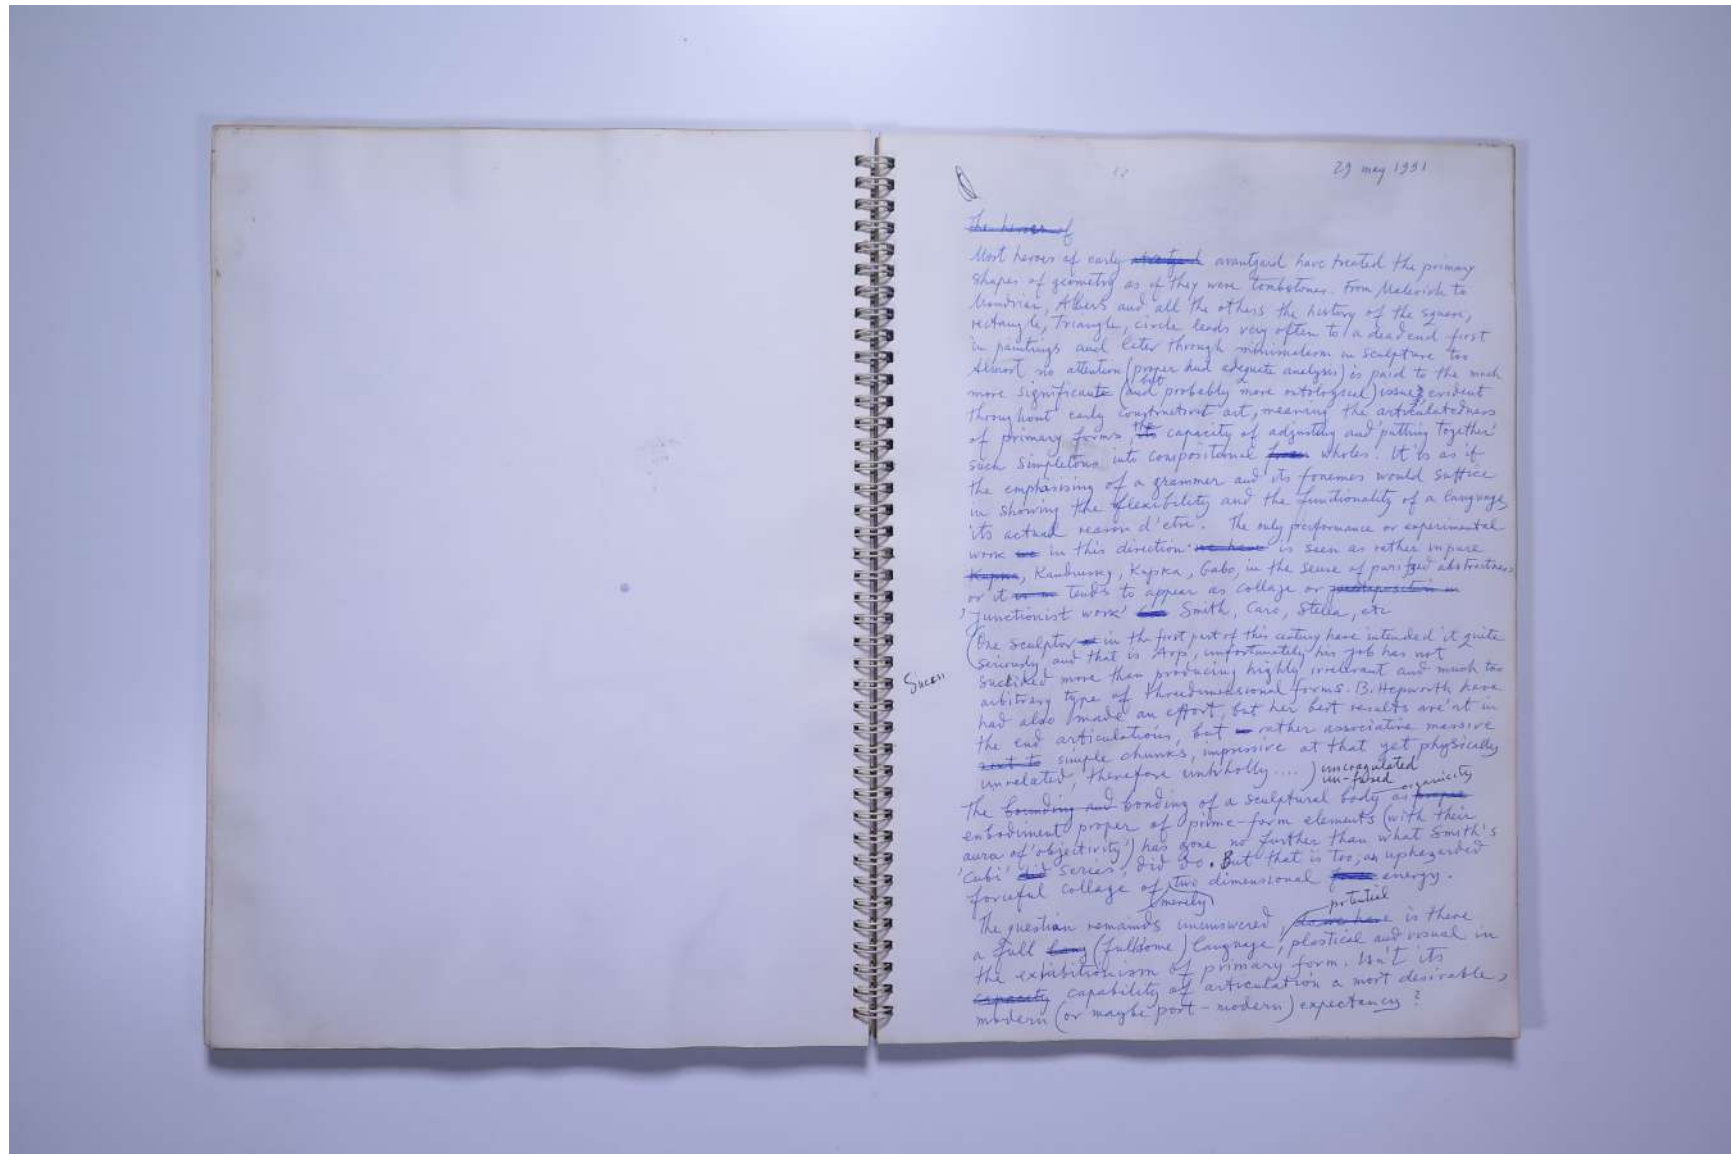 12
29 may 1991
The heroes of
Most heroes of early avantgard have treated the primary
shapes of geometry as if they were tombstones. From Malevich to
Mondrian, Albers and all the others the history of the square,
rectangle, triangle, circle leads very often to a dead end first
in paintings and later through minimalism in sculpture too
Almost no attention (proper and adequate analysis) is paid to the much
more significante (and but probably more ontological) issue, evident
throughout early constructivist art, meaning the articulatedness
of primary forms, the capacity of adjusting and 'putting together'
such simpletons into compositional wholes. It is as if
the emphasising of a grammer and its fonemes would suffice
in showing the flexibility and the functionality of a language,
its actual reason d'etre. The only performance or experimental
work in this direction we have is seen as rather impure
Kupka, Kandinsky, Kupka, Gabo, in the sense of purified abstractness,
or it is tends to appear as collage or juxtaposition
'junctionist work' Smith, Caro, Stella, etc
(One sculptor in the first part of this century have intended it quite
seriously, and that is Arp, unfortunately his job has not
Succes
suceided more than producing highly irrelevant and much too
arbitrary type of threedimensional forms. B. Hepworth have
had also made an effort, but her best results are'nt in
the end articulations, but rather associative massive
next to simple chunks, impressive at that yet physically
unrelated, therefore unwholly....) uncoagulated
un-fused
organicity
The bounding and bonding of a sculptural body as proper
enbodiment proper of prime-form elements (with their
aura of 'objectivity') has gone no further than what Smith's
'Cubi' did series, did do. But that is too, an uphazarded
forceful collage of two dimensional energy.
(merely)
potential
The question remainds unanswered, do we have is there
a full (fullsome) language, plastical and visual in
the exhibitionism of primary form. Isn't its
capacity capability of articulation a most desirable,
modern (or maybe post-modern) expectancy?